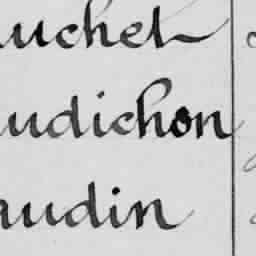 uchet
udichon
audin